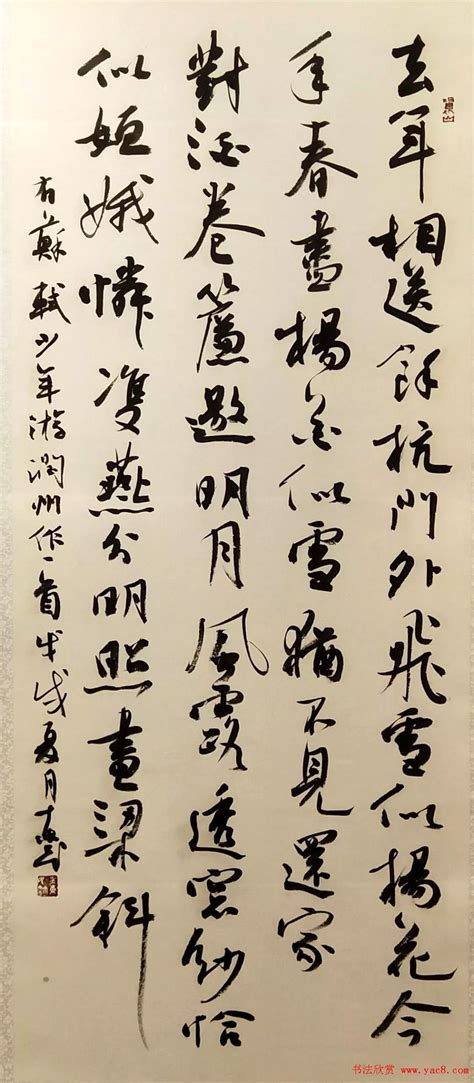 去年相送餘杭門外飛雪似楊花今
年春盡楊花似雪猶不見還家
對酒卷簾邀明月風露透窗紗恰
似姮娥憐雙燕分明照畫梁斜
右蘇軾少年游潤州作一首戊戌夏月
书法欣赏 www.yac8.com